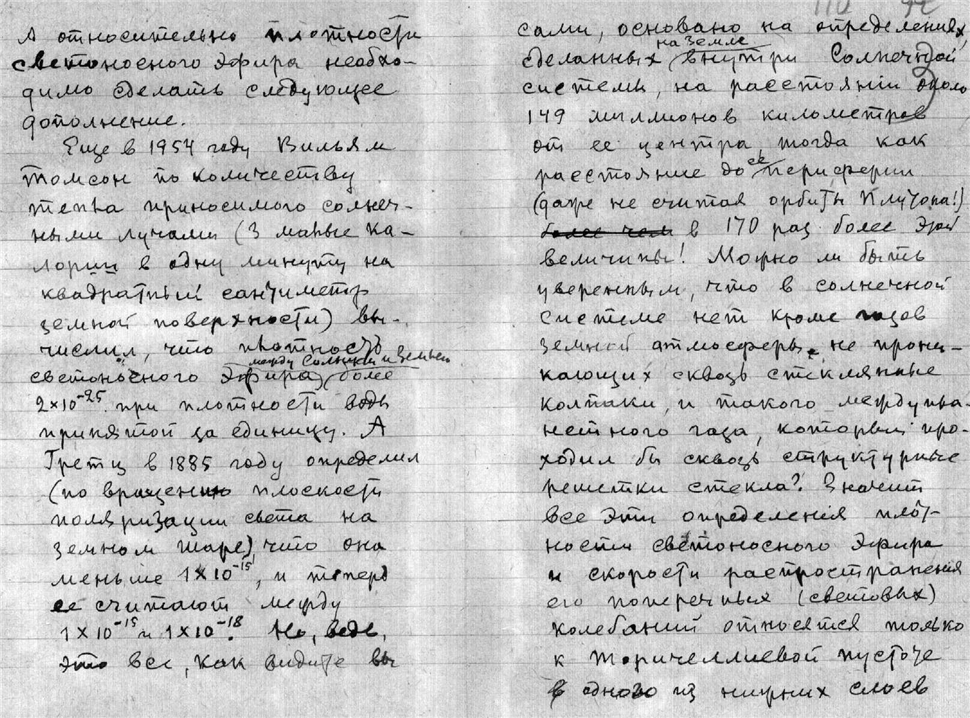 А относительно плотности
светоносного эфира необхо-
димо сделать следующее
дополнение.
Еще в 1954 году Вильям
Томсон по количеству
тепла приносимого солнеч-
ными лучами (3 малые ка-
лории в одну минуту на
квадратный сантиметр
земной поверхности) вы-
числил, что плотность
между Солнцем и Землей
светоносного эфира более
2×10⁻²⁵ при плотности воды
принятой за единицу. А
Гретц в 1885 году определил
(по вращению плоскости
поляризации света на
земном шаре) что она
меньше 1×10⁻¹⁵, и теперь
ее считают между
1×10⁻¹⁵ и 1×10⁻¹⁸. Но, ведь,
это все, как видите вы
сами, основано на определениях,
на Земле
сделанных внутри Солнечной
системы, на расстоянии около
149 миллионов километров
от ее центра, тогда как
расстояние до ее периферии
(даже не считая орбиты Плутона!)
более чем в 170 раз более этой
величины! Можно ли быть
уверенным, что в солнечной
системе нет кроме газов
земной атмосферы, не прони-
кающих сквозь стеклянные
колпаки, и такого междупла-
нетного газа, который про-
ходил бы сквозь структурные
решетки стекла? Значит
все эти определения плот-
ности светоносного эфира
и скорости распространения
его поперечных (световых)
колебаний относятся только
к Торичеллиевой пустоте
в одном из нижних слоев